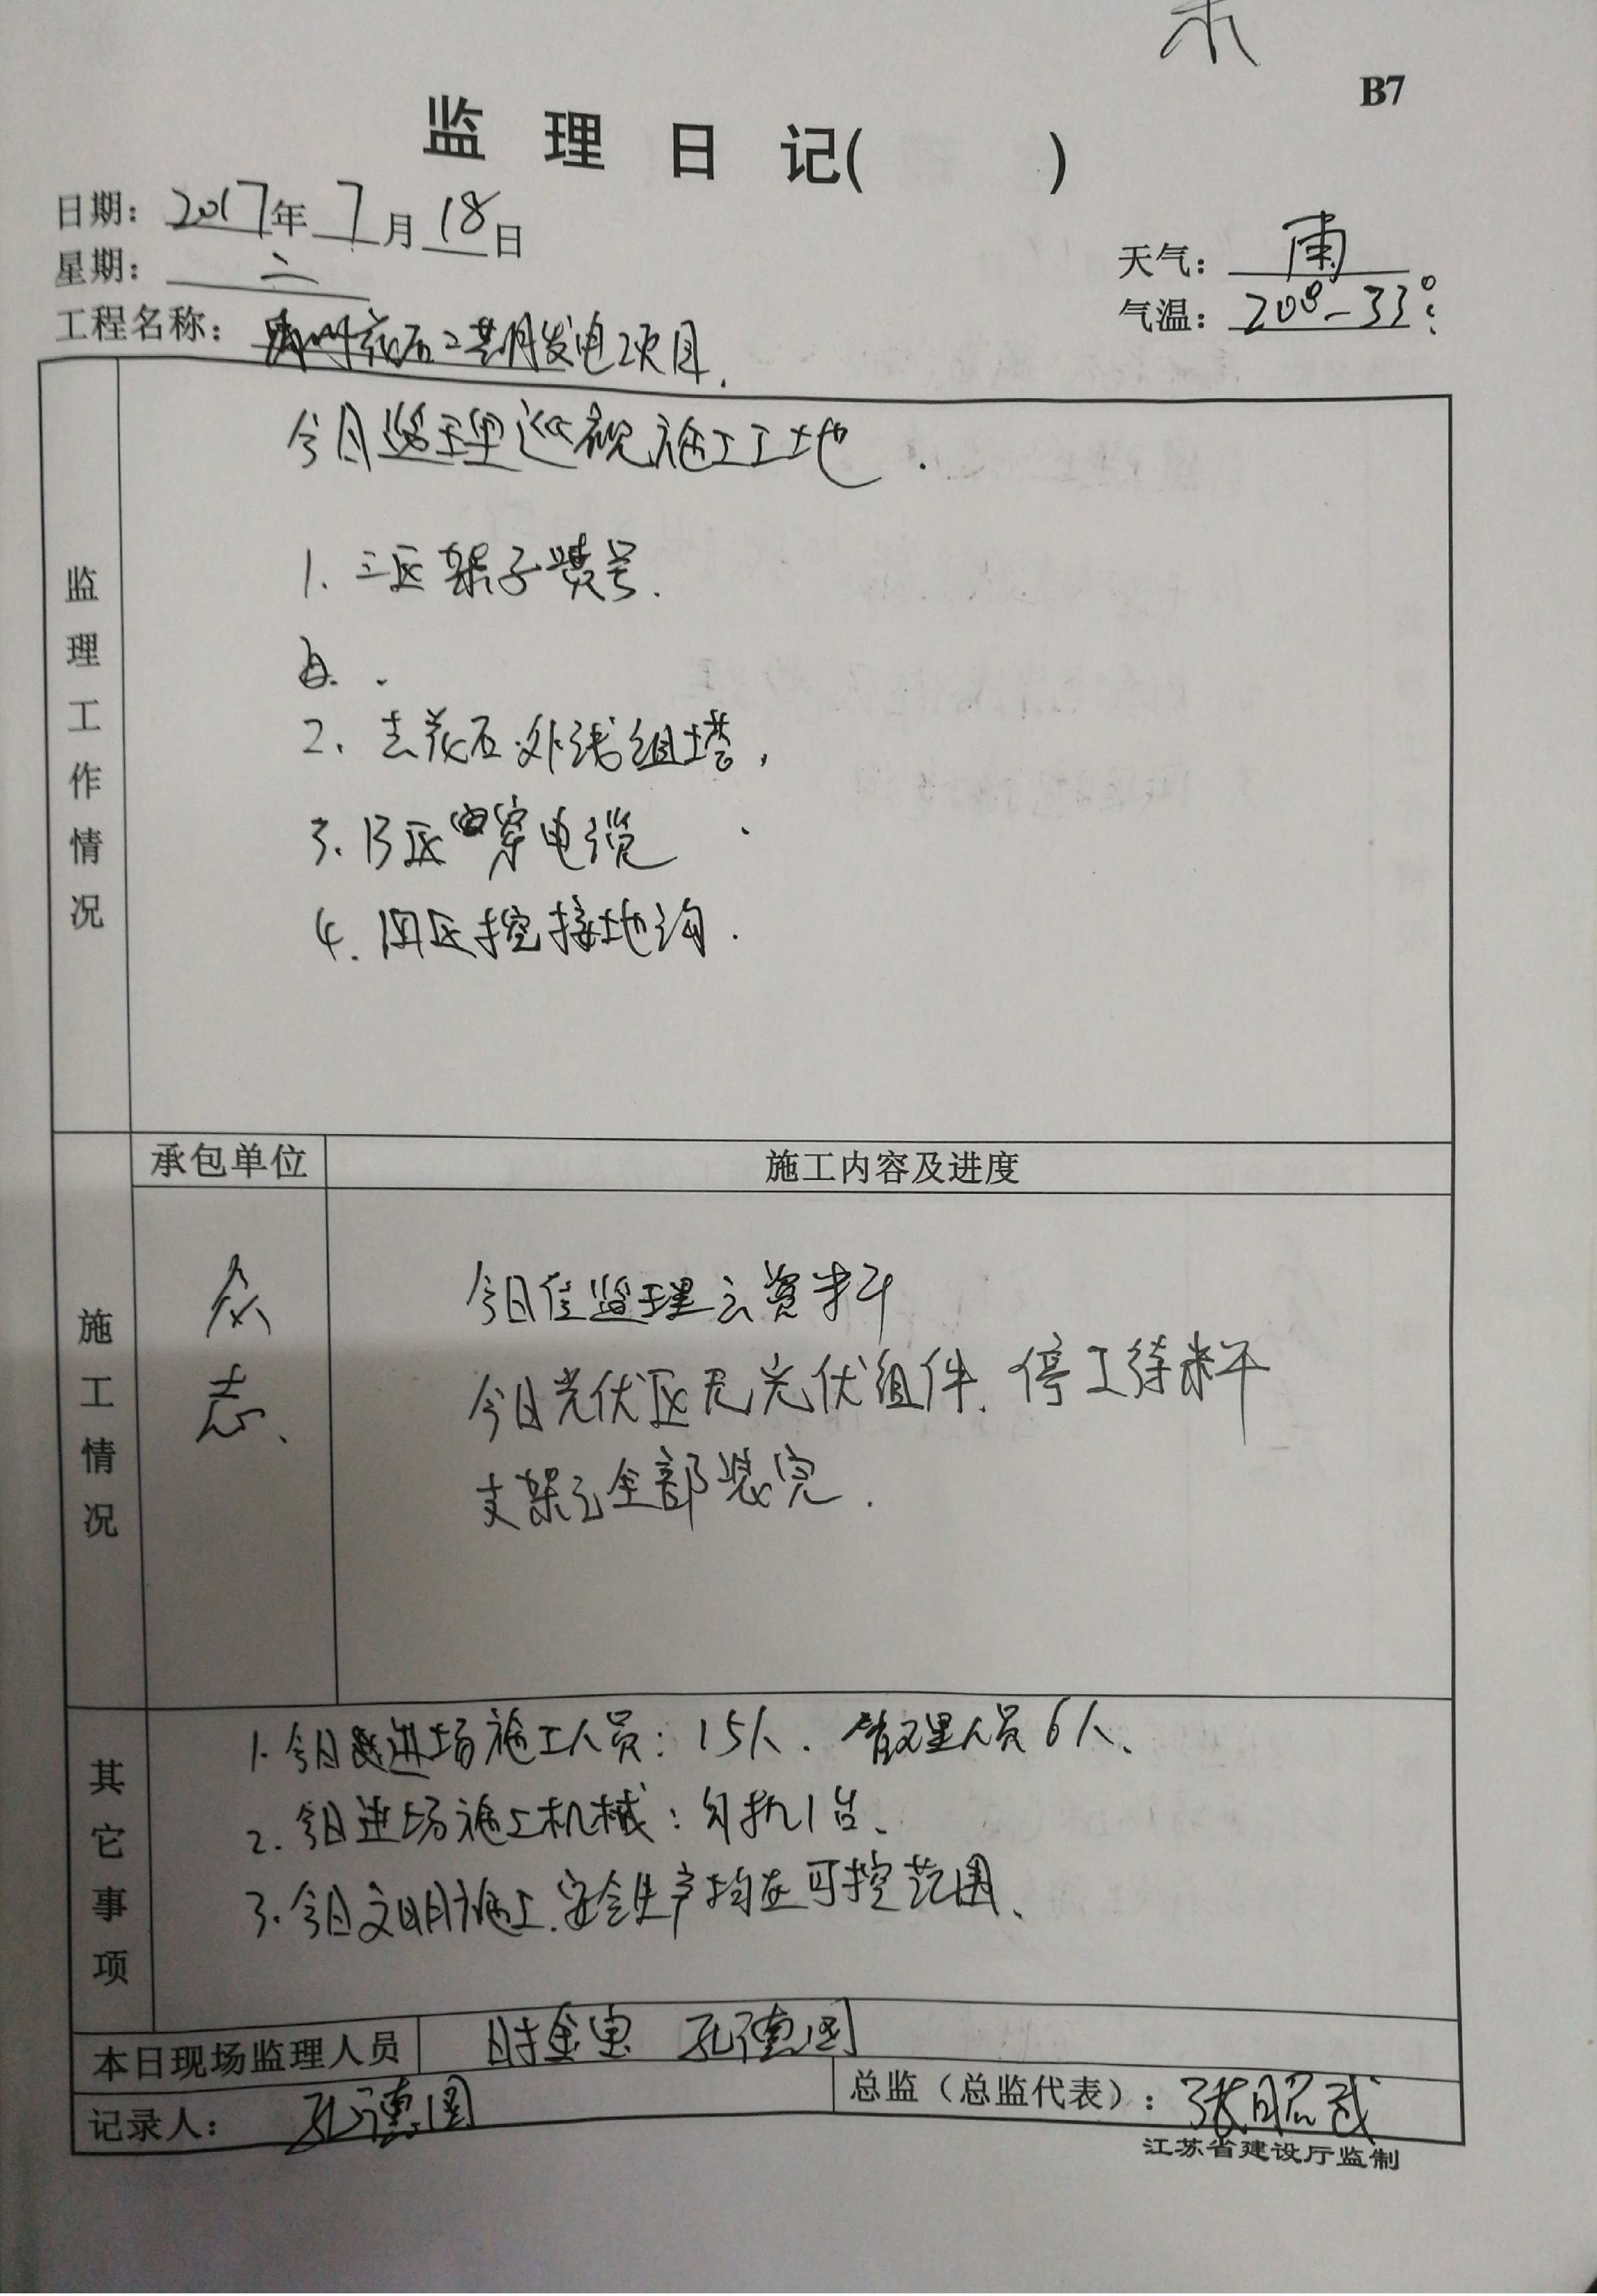 B7
监理日记( )
日期: 2017年7月18日
星期: 二
天气: 雨
气温: 20°-33°
工程名称: 花石二期发电项目.
监理工作情况
今日监理巡视施工工地.
1. 三区架子
2. 去花石外线组塔,
3. B区穿电缆
4. 四区挖接地沟.
承包单位
施工内容及进度
施工情况
众志、
今日监理资料
今日光伏区无光伏组件、停工待料
支架已全部装完.
其它事项
1. 今日进场施工人员: 15人. 管理人员6人、
2. 今日进场施工机械: 勾机1台、
3. 今日文明施工.安全生产均在可控范围、
本日现场监理人员 孔德国
记录人: 孔德国
总监(总监代表): 张昭武
江苏省建设厅监制